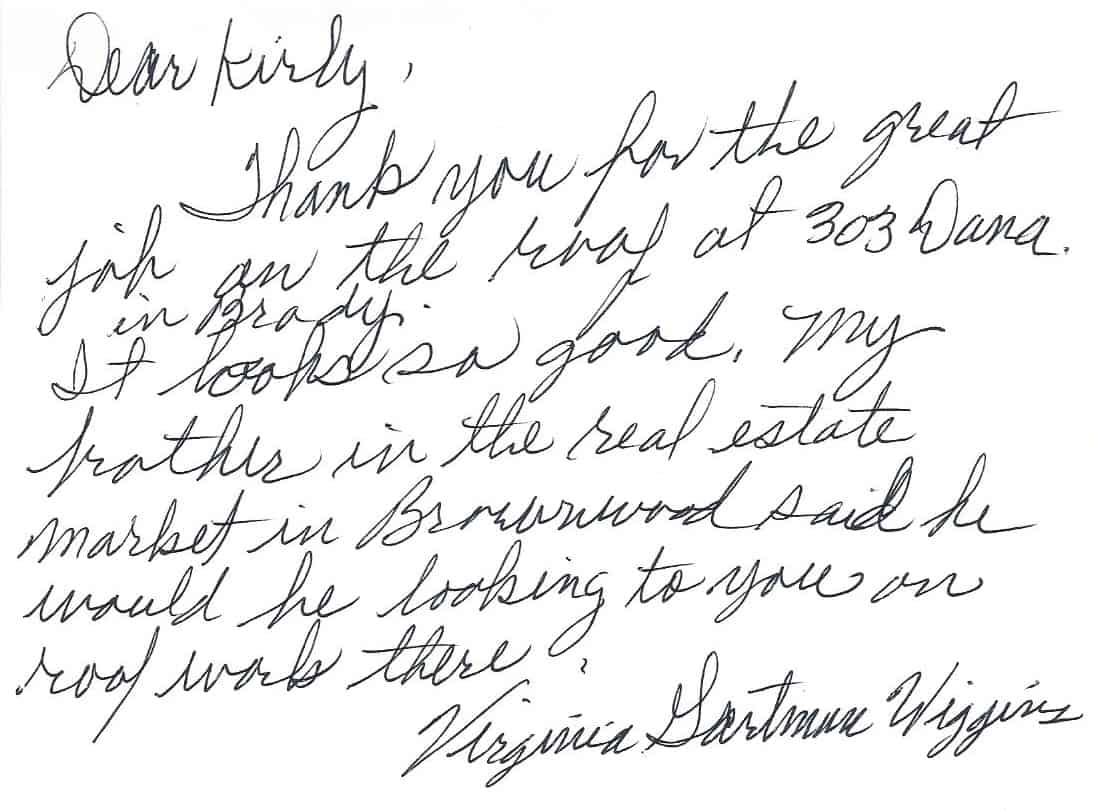 Dear Kirby,
Thank you for the great
job on the roof at 303 Dana.
in Brady.
It looks so good. My
brother in the real estate
market in Brownwood said he
would be looking to you on
roof work there.
Virginia Gartman Wiggins